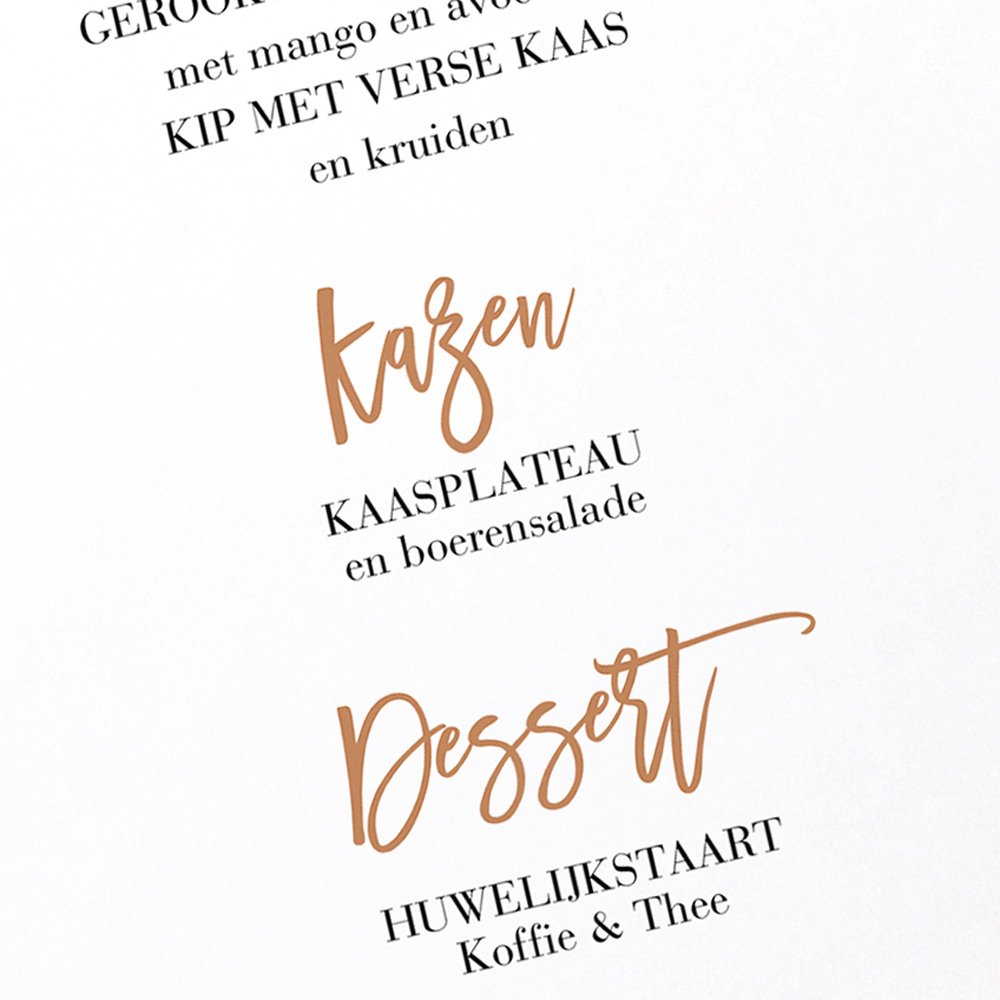 met mango en
KIP MET VERSE KAAS
en kruiden
Kazen
KAASPLATEAU
en boerensalade
Dessert
HUWELIJKSTAART
Koffie & Thee